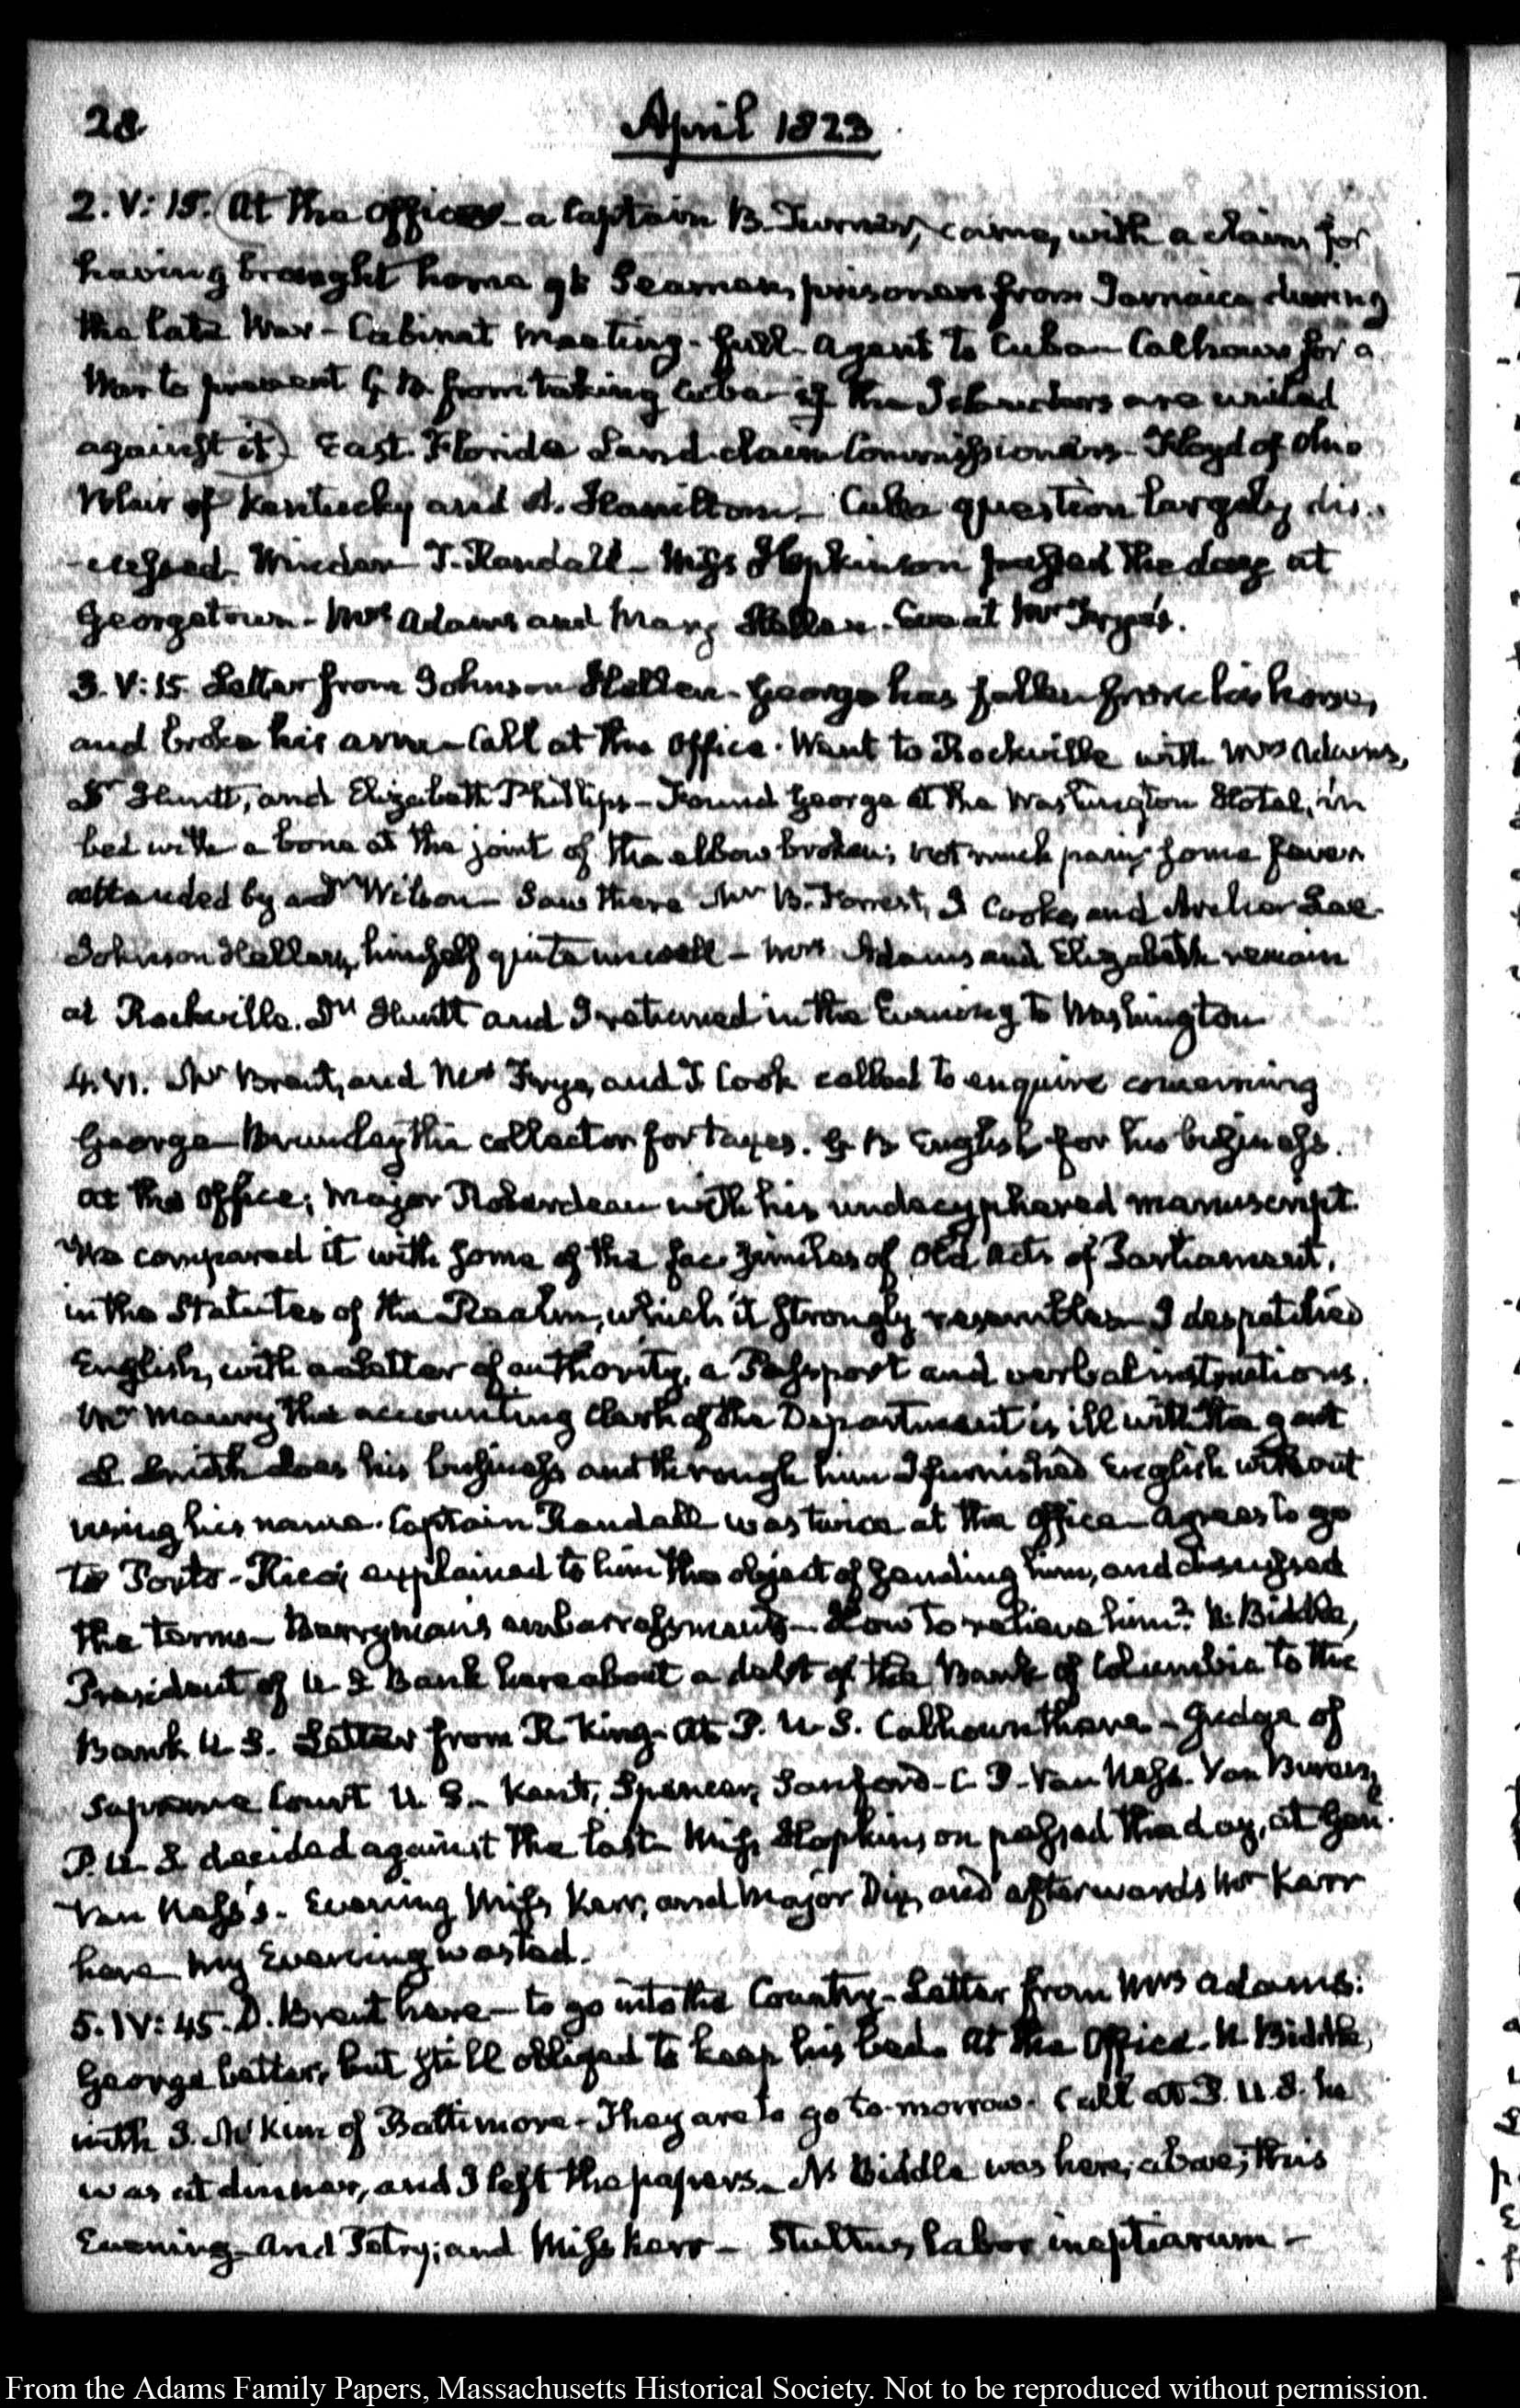 28
April 1823
2. V: 15. At the office - a Captain B. Turner, came, with a claim for
having brought home 98 Seamen, prisoners from Jamaica during
the late War - Cabinet meeting - full - Agent to Cuba - Calhoun for a
War to prevent G. B. from taking Cuba - if the Islanders are united
against it - East Florida Land claim Commissioners - Floyd of Ohio
Blair of Kentucky and A. Hamilton - Cuba question largely dis-
-cussed - Winder - T. Randall - Miss Hopkinson passed the day at
Georgetown - Mrs. Adams and Mary Hellen - Eve at Mr Frye's.
3. V: 15. Letter from Johnson Hellen - George has fallen from his horse,
and broke his arm - Call at the Office. Went to Rockville with Mrs Adams,
Dr Huntt, and Elizabeth Phillips - Found George at the Washington Hotel, in
bed with a bone at the joint of the elbow broken; not much pain; some fever
attended by a Dr Wilson - Saw there Mr B. Forrest, J Cooke, and Archer Lee.
Johnson Hellen, himself quite unwell - Mrs Adams and Elizabeth remain
at Rockville. Dr Huntt and I returned in the Evening to Washington
4. VI. Mr Brent, and Mrs Frye, and J Cook called to enquire concerning
George - Brunley the collector for taxes. G. B English for his business.
at the Office; Major Roberdeau with his undecyphered manuscript.
We compared it with some of the fac similes of Old Acts of Parliament,
in the Statutes of the Realm, which it strongly resembles - I despatched
English, with a Letter of authority, a Passport and verbal instructions.
Mr Maury the accounting Clerk of the Department is ill with the gout
Smith does his business and through him I furnished English without
using his name. Captain Randall was twice at the Office - agrees to go
to Porto-Rico; explained to him the object of sending him, and discussed
the terms - Berryman's embarrassments - How to relieve him? N. Biddle,
President of U. S Bank here about a debt of the Bank of Columbia to the
Bank U. S. Letter from R King - At P. U. S. Calhoun there - Judge of
Supreme Court U. S. - Kent, Spencer, Sanford - C. P. Van Ness - Van Buren,
P. U. S decided against the last - Miss Hopkinson passed the day, at Genl.
Van Ness's. Evening Miss Kerr, and Major Dix, and afterwards Mr Karr
here - My Evening wasted.
5. IV: 45. D. Brent here - to go into the Country - Letter from Mrs Adams:
George better, but still obliged to keep his bed. At the Office. N. Biddle,
with I. McKim of Baltimore - They are to go to-morrow. Call at P. U. S. he
was at dinner, and I left the papers. N. Biddle was here, above, this
Evening - And Petry; and Miss Kerr - Stultus labor ineptiarum -
From the Adams Family Papers, Massachusetts Historical Society. Not to be reproduced without permission.